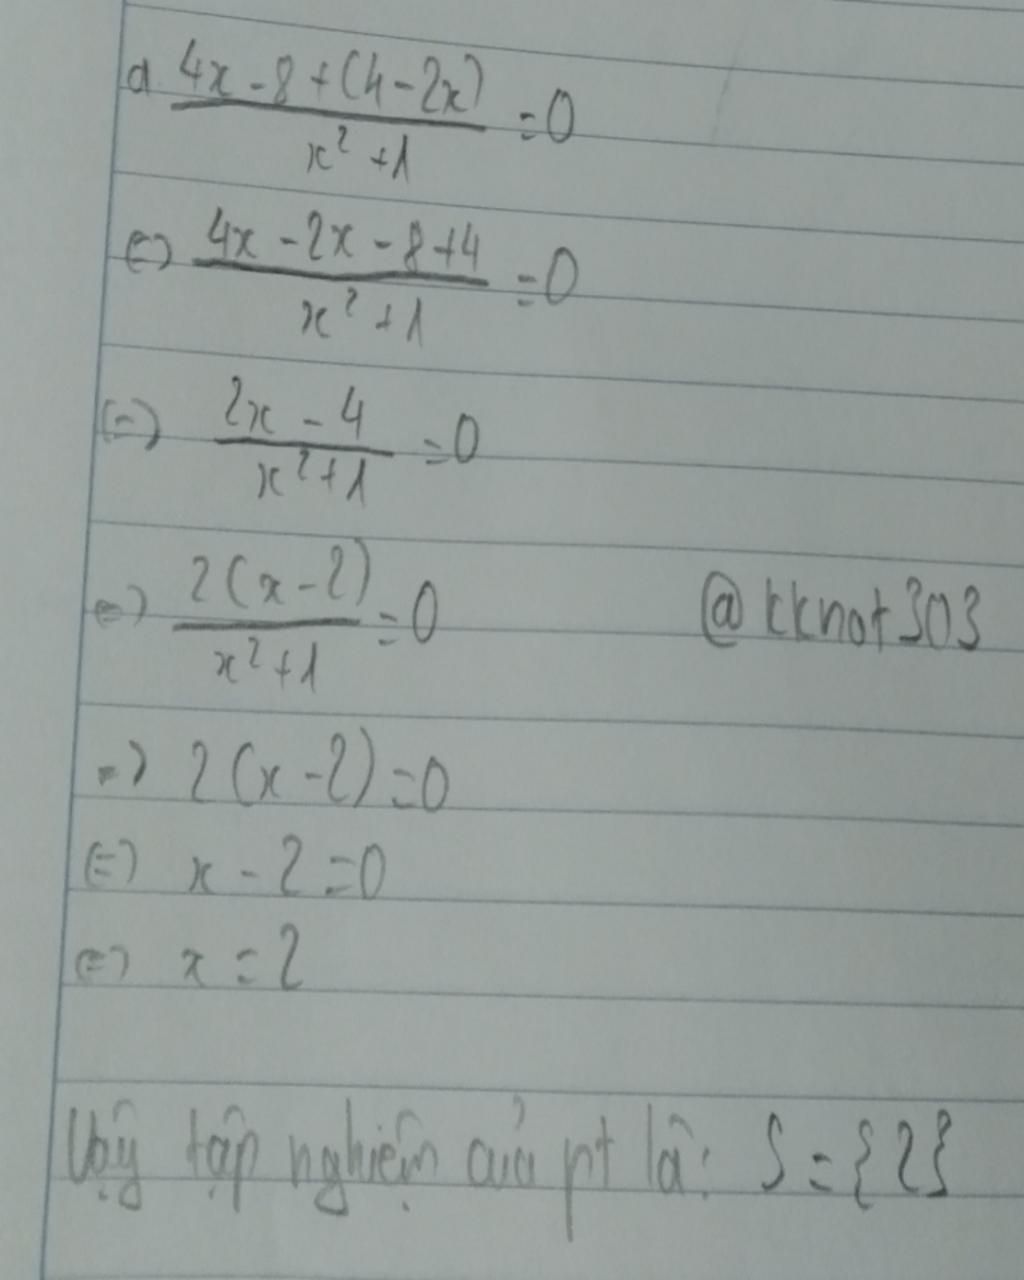 a. (4x - 8 + (4 - 2x))/(x² + 1) = 0
⇔ (4x - 2x - 8 + 4)/(x² + 1) = 0
⇔ (2x - 4)/(x² + 1) = 0
⇔ (2(x - 2))/(x² + 1) = 0
@kknot303
⇒ 2(x - 2) = 0
⇔ x - 2 = 0
⇔ x = 2
Vậy tập nghiệm của pt là: S = {2}